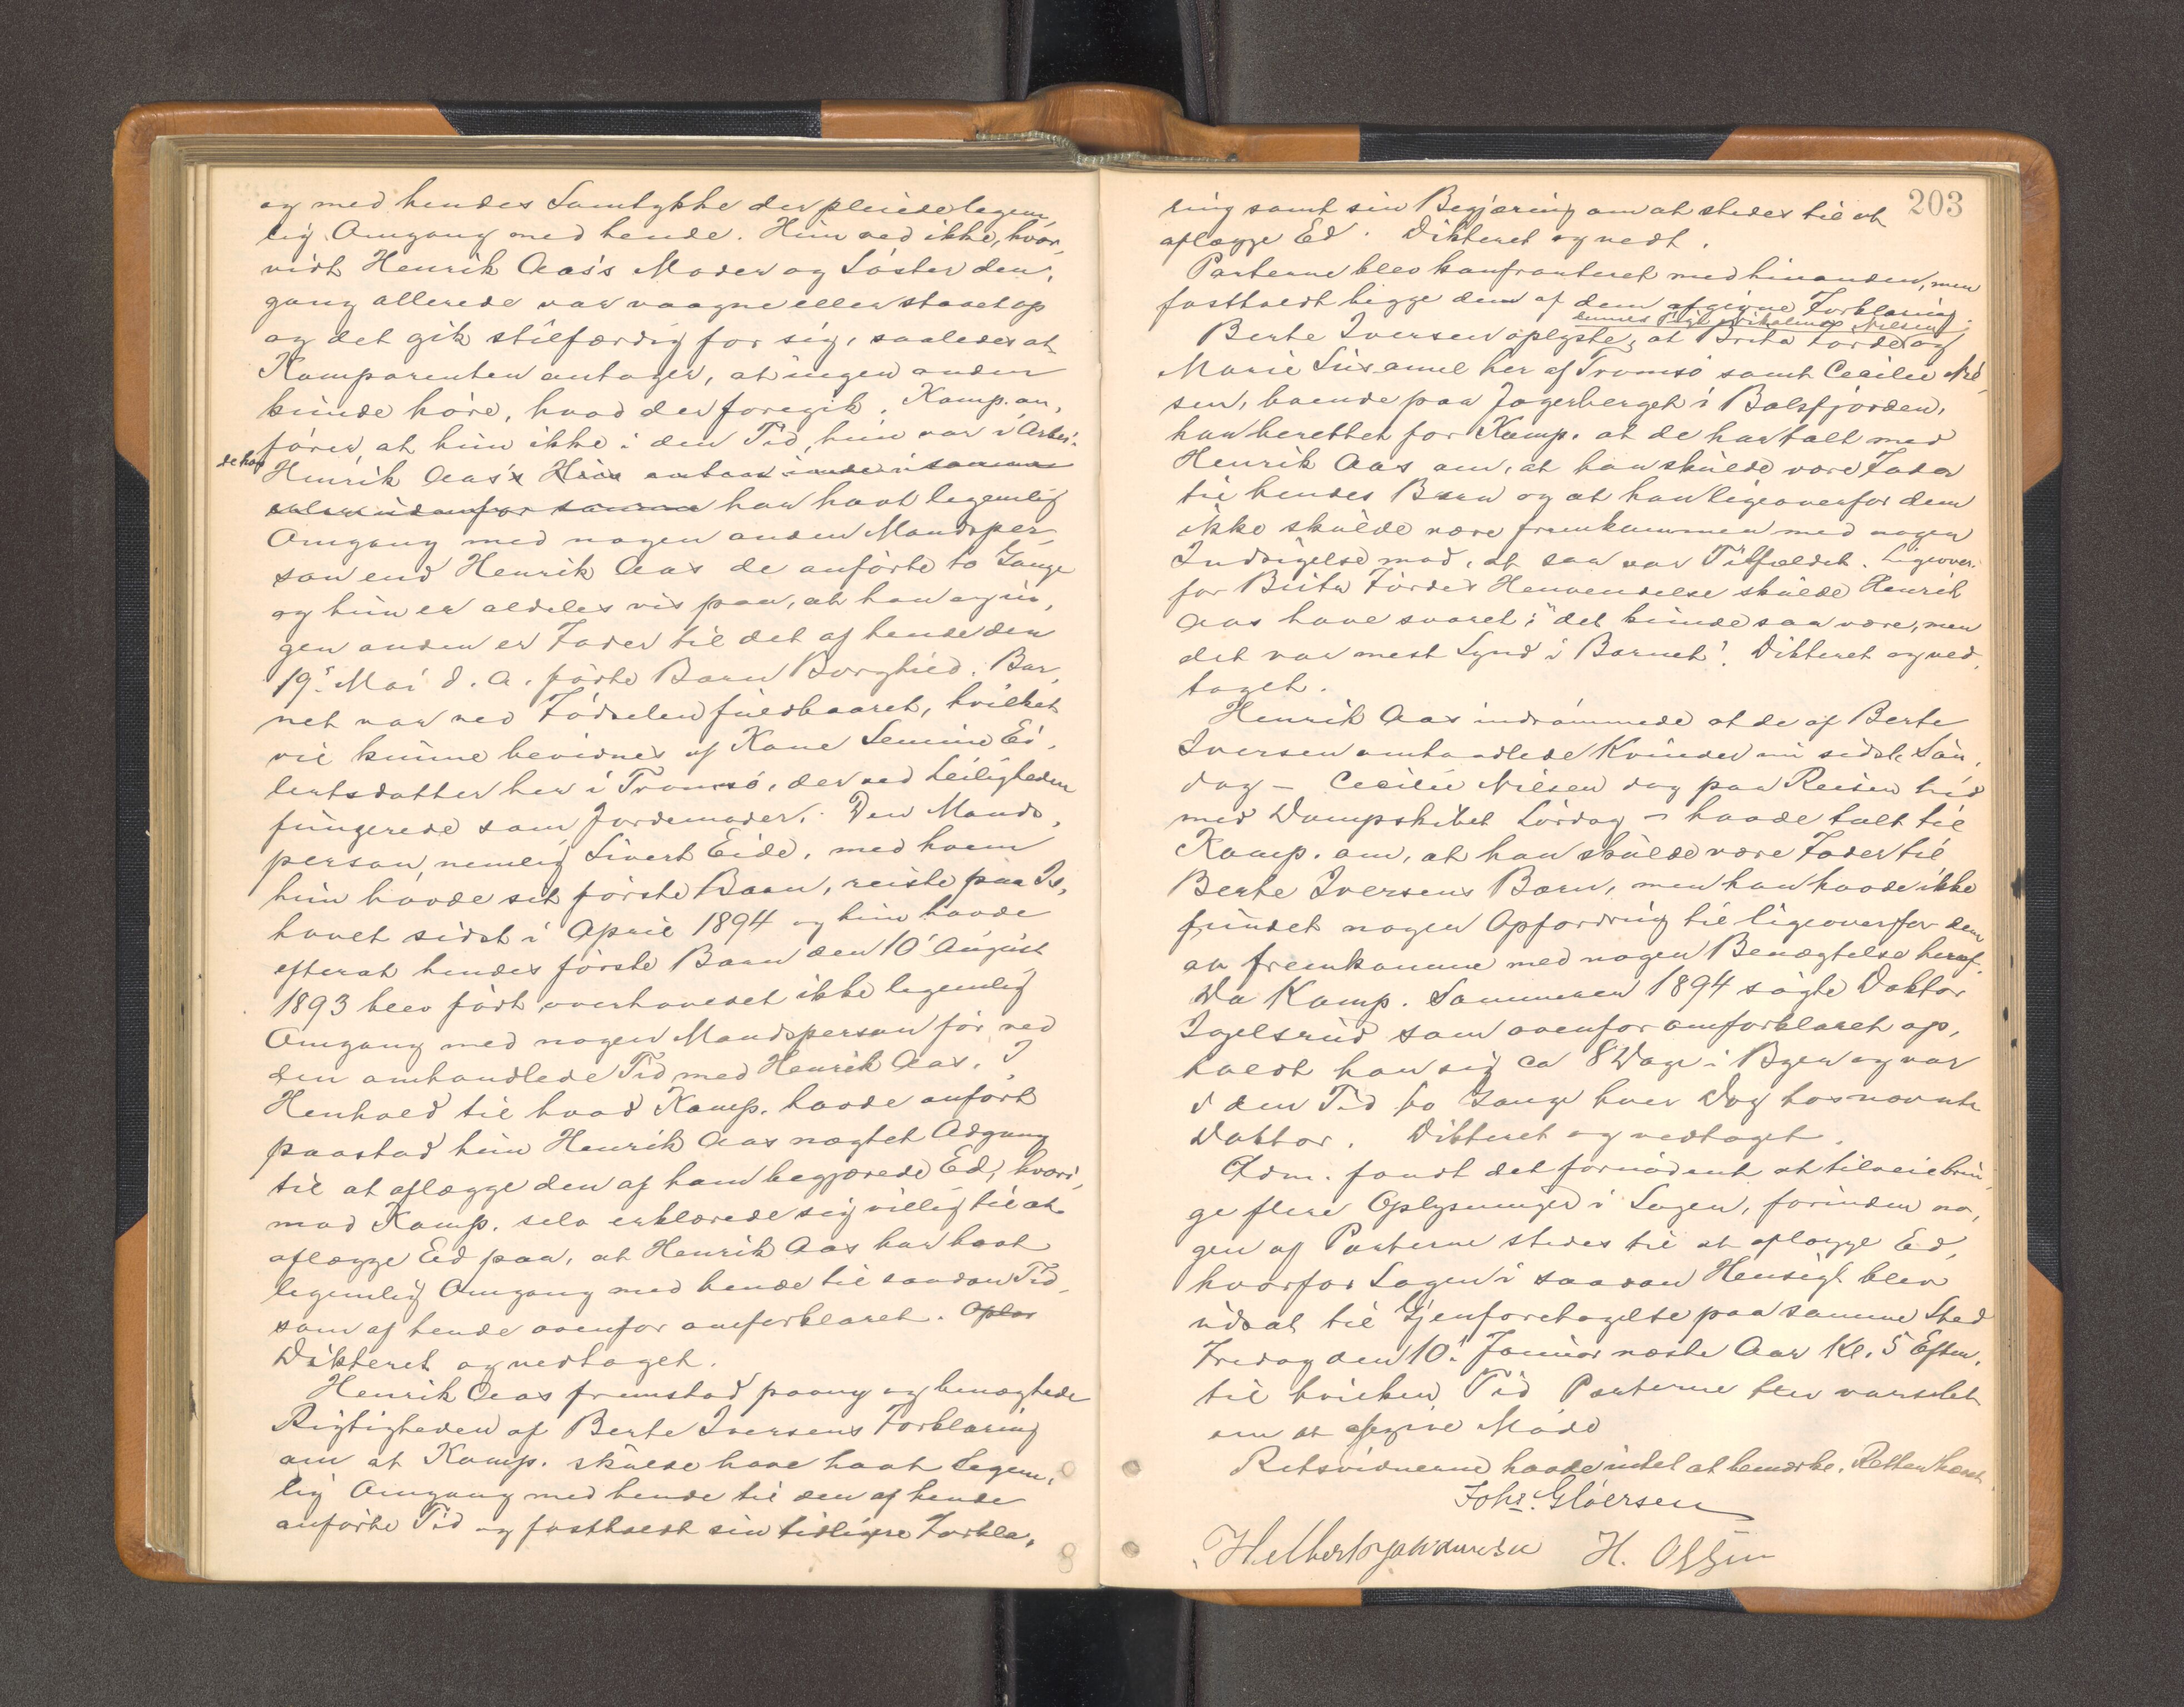 og med hendes Samtykke der pleiede legem,
lig Omgang med hende. Hun ved ikke, hvor,
vidt Henrik Aas's Moder og Søster den,
gang allerede var vaagne eller staaet op
og det gik stilfærdig for sig, saaledes at
Komparenten antager, at ingen anden
kunde høre, hvad der foregik. Komp. an,
fører, at hun ikke i den Tid, hun var i Arbei,
de hos Henrik Aas's Hus
har havt legemlig
Omgang med nogen anden Mandsper,
son end Henrik Aas de anførte to Gange
og hun er aldeles vis paa, at han og in,
gen anden er Fader til det af hende den
19. Mai d. A. fødte Barn Borghild. Bar,
net var ved Fødselen fuldbaaret, hvilket
vil kunne bevidnes af Kone Lemine Ei,
lertsdatter her i Tromsø, der ved Leiligheden
fungerede som Jordemoder. Den Mands,
person, nemlig Sivert Eide, med hvem
hun havde sit første Barn, reiste paa Is,
havet sidst i April 1894 og hun havde
efterat hendes første Barn den 10 August
1893 blev født overhovedet ikke legemlig
Omgang med nogen Mandsperson før ved
den omhandlede Tid med Henrik Aas. I
Henhold til hvad Komp. havde anført
paastod hun Henrik Aas nægtet Adgang
til at aflægge den af ham begjærede Ed, hvori,
mod Komp. selv erklærede sig villig til at
aflægge Ed paa, at Henrik Aas har havt
legemlig Omgang med hende til saadan Tid,
som af hende ovenfor omforklaret. Oplæs
Dikteret og vedtaget.
Henrik Aas fremstod paany og benægtede
Rigtigheden af Berte Iversens Forklaring
om at Komp. skulde have havt legem,
lig Omgang med hende til den af hende
anførte Tid og fastholdt sin tidligere Forkla,
203
ring samt sin Begjæring om at stedes til at
aflægge Ed. Dikteret og vedt.
Parterne blev konfronteret med hinanden, men
fastholdt begge den af dem afgivne Forklaring.
Nilsen
Berte Iversen oplyste, at Brita Førde og
Marie Susanne her af Tromsø samt Cecilie Nil,
sen, boende paa Jagerberget i Balsfjorden,
har berettet for Komp. at de har talt med
Henrik Aas om, at han skulde være Fader
til hendes Barn og at han ligeoverfor dem
ikke skulde være fremkommen med nogen
Indsigelse mod, at saa var Tilfældet. Ligeover,
for Brita Førdes Henvendelse skulde Henrik
Aas have svaret: "det kunde saa være, men
det var mest Synd i Barnet". Dikteret og ved,
taget.
Henrik Aas indrømmede at de af Berte
Iversen omhandlede Kvinder nu sidste Søn,
dag – Cecilie Nilsen dog paa Reisen hid
med Dampskibet Lørdag – havde talt til
Komp. om, at han skulde være Fader til
Berte Iversens Barn, men han havde ikke
fundet nogen Opfordring til ligeoverfor dem
at fremkomme med nogen Benægtelse heraf.
Da Komp. Sommeren 1894 søgte Doktor
Ingelsrud som ovenfor omforklaret op,
holdt han sig ca 8 Dage i Byen og var
i den Tid to Gange hver Dag hos nævnte
Doktor. Dikteret og vedtaget.
Adm. fandt det fornødent at tilveiebrin,
ge flere Oplysninger i Sagen, forinden no,
gen af Parterne stedes til at aflægge Ed,
hvorfor Sagen i saadan Hensigt blev
udsat til Gjenforetagelse paa samme Sted
Fredag den 10. Januar næste Aar Kl. 5 Eftm.
til hvilken Tid Parterne blev varslet
om at afgive Møde
Retsvidnerne havde intet at bemærke. Retten hævet
Johs. Gløersen
H. Olsen